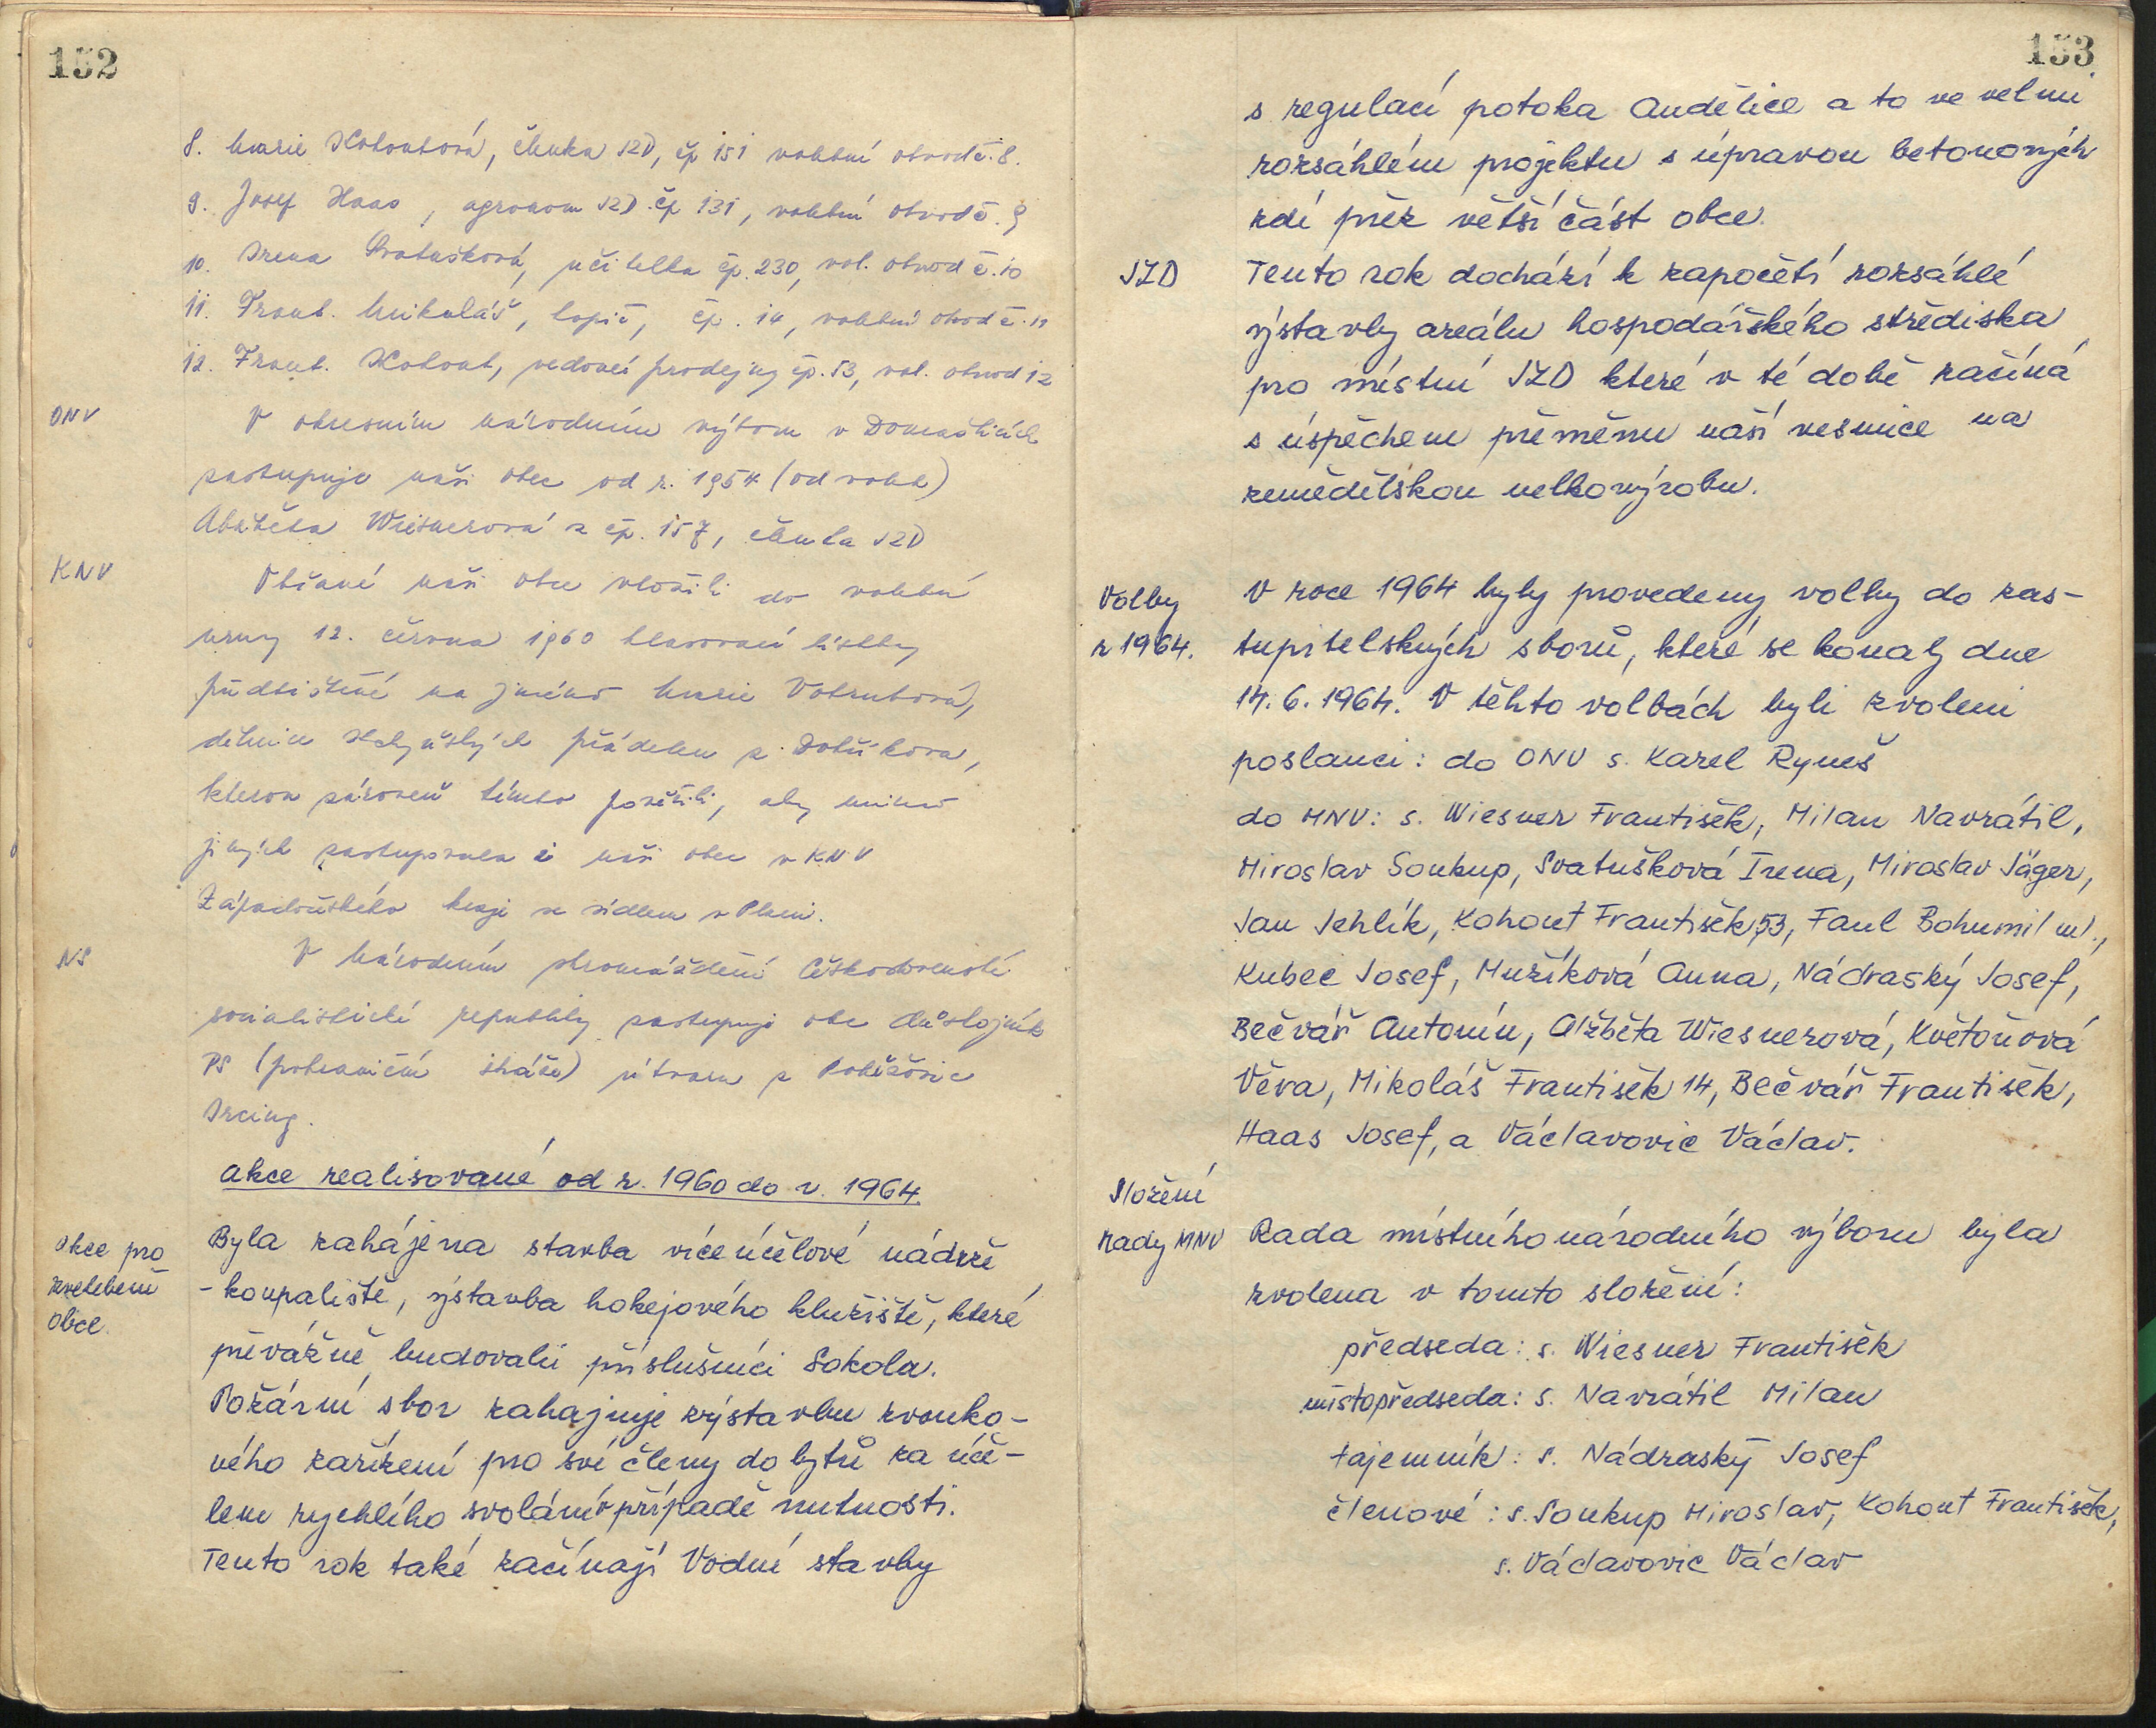 152
8. Marie Kohoutová, členka JZD, čp 151 volební obvod č. 8.
9. Josef Haas, agronom JZD čp 131, volební obvod č. 9
10. Irena Svatušková, učitelka čp. 230, vol. obvod č. 10
11. Frant. Mikoláš, topič, čp. 14, volební obvod č. 11
12. Frant. Kohout, vedoucí prodejny čp. 53, vol. obvod 12
ONV
V okresním národním výboru v Domažlicích
zastupuje naši obec od r. 1954 (od voleb)
Alžběta Wiesnerová z čp. 157, členka JZD
KNV
Občané naší obce vložili do volební
urny 12. června 1960 hlasovací lístky
předtištěné na jméno Marie Votrubová,
dělnice přádelen z Dobříkova,
kterou zároveň tímto pověřili, aby mimo
jiných zastupovala i naši obec v KNV
Západočeského kraje se sídlem v Plzni.
NS
V Národním shromáždění Československé
socialistické republiky zastupuje obec důstojník
PS (pohraniční stráže) útvaru z Poběžovic
Ircing.
Akce realisované od r. 1960 do r. 1964.
Akce pro
zvelebení
obce.
Byla zahájena stavba víceúčelové nádrže
- koupaliště, výstavba hokejového kluziště, které
převážně budovali příslušníci Sokola.
Požární sbor zahajuje výstavbu zvonko-
vého zařízení pro své členy do bytů za úče-
lem rychlého svolání v případě nutnosti.
Tento rok také začínají Vodní stavby
153
s regulací potoka Andělice a to ve velmi
rozsáhlém projektu s úpravou betonových
zdí přez větší část obce.
JZD
Tento rok dochází k započetí rozsáhlé
výstavby areálu hospodářského střediska
pro místní JZD které v té době začíná
s úspěchem přeměnu naší vesnice na
zemědělskou velkovýrobu.
Volby
r 1964.
V roce 1964 byly provedeny volby do zas-
tupitelských sborů, které se konaly dne
14. 6. 1964. V těhto volbách byli zvoleni
poslanci: do ONV s. Karel Ryneš
do MNV: s. Wiesner František, Milan Navrátil,
Miroslav Soukup, Svatušková Irena, Miroslav Jäger,
Jan Jehlík, Kohout František 53, Faul Bohumil ml.,
Kubec Josef, Mužíková Anna, Nádraský Josef,
Bečvář Antonín, Alžběta Wiesnerová, Květoňová
Věra, Mikoláš František 14, Bečvář František,
Haas Josef, a Václavovic Václav.
Složení
rady MNV
Rada místního národního výboru byla
zvolena v tomto složení:
předseda: s. Wiesner František
místopředseda: s. Navrátil Milan
tajemník: s. Nádraský Josef
členové: s. Soukup Miroslav, Kohout František,
s. Václavovic Václav